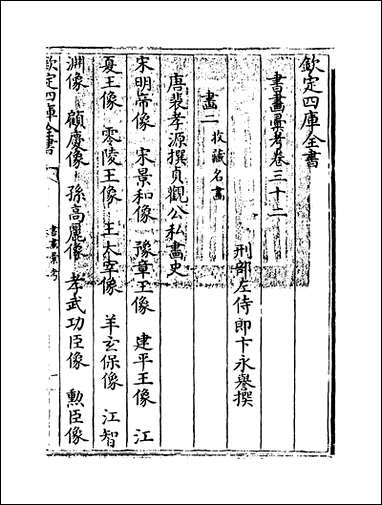 欽定四庫全書
書畫彙考卷三十二
刑部左侍郎卞永譽撰
畫二 收藏名畫
唐裴孝源撰貞觀公私畫史
宋明帝像 宋景和像 豫章王像 建平王像 江
夏王像 零陵王像 王太宰像 羊玄保像 江智
淵像 顧慶像 孫高麗像 孝武功臣像 勲臣像
欽定四庫全書
書畫彙考
一